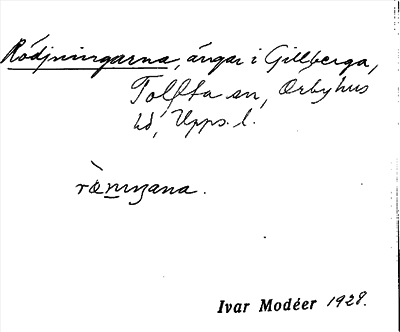 Rödjningarna, ängar i Gillberga,
Tolfta sn, Örbyhus
hd, Upps. l.
rænıŋana.
Ivar Modéer 1928.